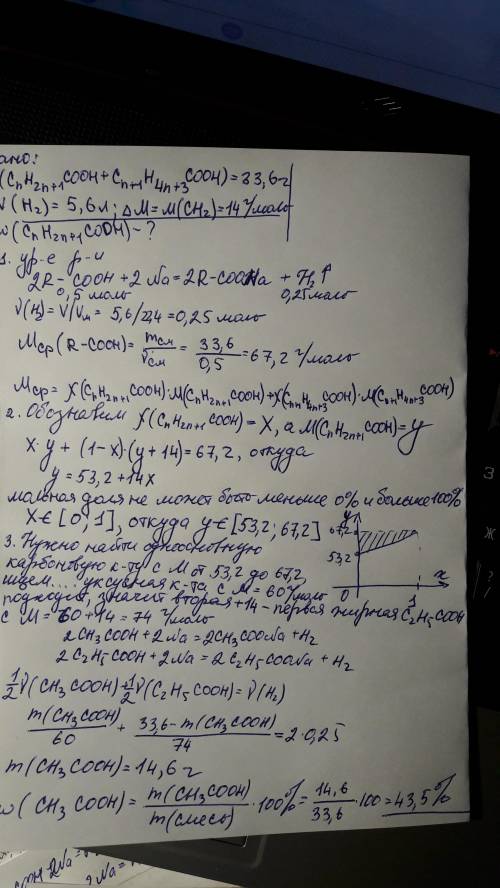 ано:
(CnH2n+1COOH+Cn+1H4n+3COOH)=33,6г
V(H2)=5,6л; ΔM=M(CH2)=14 г/моль
w(CnH2n+1COOH)-?
1. ур-е р-и
2R-COOH+2Na=2R-COONa + H2↑
0,5 моль 0,25 моль
ν(H2)=V/Vm = 5,6/22,4=0,25 моль
Mср(R-COOH)= mсм/νсм = 33,6/0,5 =67,2 г/моль
Mср= χ(CnH2n+1COOH)·M(CnH2n+1COOH)+χ(Cn+1H4n+3COOH)·M(CnH4n+3COOH)
2. Обозначим χ(CnH2n+1COOH)=X, а M(CnH2n+1COOH)=y
X·y + (1-x)(y+14)=67,2, откуда
y=53,2+14x
мольная доля не может быть меньше 0% и больше 100%
X∈[0;1], откуда y∈[53,2;67,2]
y
67,2
53,2
0
1
x
3. Нужно найти одноосновную
карбоновую к-ту с M от 53,2 до 67,2,
ищем... уксусная к-та с M=60 г/моль
подходит, значит вторая +14 - первая жирная C2H5COOH
с M=60+14=74 г/моль
2CH3COOH+2Na=2CH3COONa+H2
2C2H5COOH+2Na=2C2H5COONa+H2
1/2ν(CH3COOH)+1/2ν(C2H5COOH)=ν(H2)
m(CH3COOH)/60 + 33,6-m(CH3COOH)/74 =2·0,25
m(CH3COOH)=14,6г
w(CH3COOH)= m(CH3COOH)/m(смесь) ·100%= 14,6/33,6 ·100=43,5%